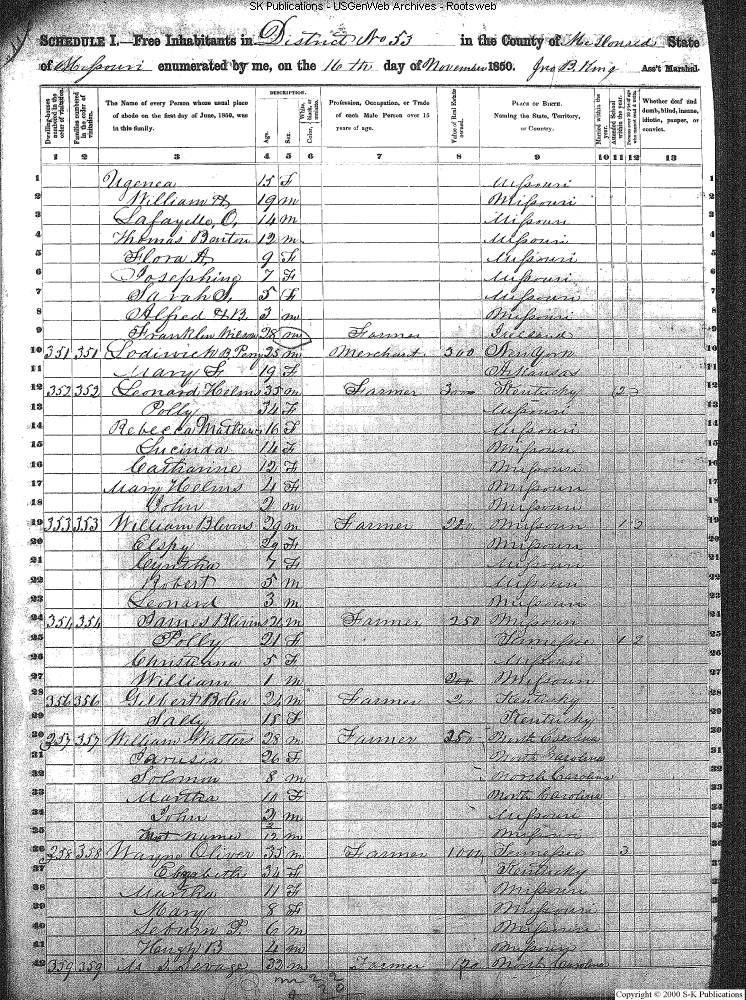 SK Publications - USGenWeb Archives - Rootsweb
SCHEDULE I.—Free Inhabitants in District No 53 in the County of McDonald State
of Missouri enumerated by me, on the 16th day of November 1850. Jno B. King Ass't Marshal.
Dwelling-houses numbered in the order of visitation.
Families numbered in the order of visitation.
The Name of every Person whose usual place of abode on the first day of June, 1850, was in this family.
DESCRIPTION.
Age.
Sex.
Color,
Profession, Occupation, or Trade of each Male Person over 15 years of age.
Value of Real Estate owned.
PLACE OF BIRTH.
Naming the State, Territory, or Country.
Married within the year.
Attended School within the year.
Whether deaf and dumb, blind, insane, idiotic, pauper, or convict.
1 2 3 4 5 6 7 8 9 10 11 12 13
1 Ugenea 15 F Missouri 1
2 William H 19 m Missouri 2
3 Lafayello, O, 14 m Missouri 3
4 Thomas Banton 12 m Missouri 4
5 Flora A, 9 F Missouri 5
6 Josephine 7 F Missouri 6
7 Sarah J, 5 F Missouri 7
8 Alfred H B. 3 m Missouri 8
9 Franklin Wilson 28 m Farmer Ireland 9
10 351 351 Lodiwick B Perry 25 m Merchant 300 New York 10
11 Mary F 19 F Arkansas 11
12 352 352 Leonard Helms 35 m Farmer Kentucky 12
13 Polly 34 F Missouri 13
14 Rebecca Mathews 16 F Missouri 14
15 Lucinda 14 F Missouri 15
16 Catharine 12 F Missouri 16
17 Mary Helms 4 F Missouri 17
18 John 2 m Missouri 18
19 353 353 William Blivins m Farmer 220 Missouri 19
20 Elspy 29 F Missouri 20
21 Cyntha 7 F Missouri 21
22 Robert 5 m Missouri 22
23 Leonard 3 m Missouri 23
24 354 354 James Blivins m Farmer 250 Missouri 24
25 Polly 21 F Tennessee 1 2 25
26 Christiana 5 F Missouri 26
27 William 1 m 200 Missouri 27
28 356 356 Gilbert Bolen 24 m Farmer 200 Kentucky 28
29 Sally 18 F Kentucky 29
30 257 357 William Walters 28 m Farmer 250 North Carolina 30
31 Parusia 26 F North Carolina 31
32 Solomon 8 m North Carolina 32
33 Martha 10 F North Carolina 33
34 John 2 m Missouri 34
35 Not Named m Missouri 35
36 258 358 Wayne Oliver 35 m Farmer 1000 Tennessee 3 36
37 Elizabeth 34 F Kentucky 37
38 Martha 11 F Missouri 38
39 Mary 8 F Missouri 39
40 Seburn P. 6 m Missouri 40
41 Hugh B 4 m Missouri 41
42 359 359 Savage 33 m Farmer North Carolina 42
Copyright © 2000 S-K Publications